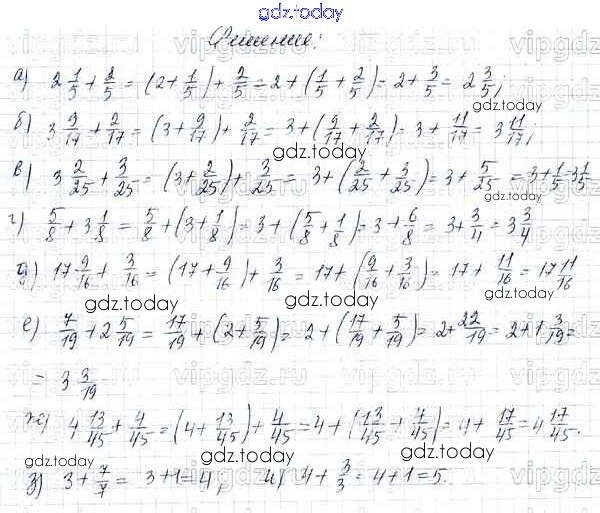 gdz.today
Решение:
а) 2 1/5 + 2/5 = (2 + 1/5) + 2/5 = 2 + (1/5 + 2/5) = 2 + 3/5 = 2 3/5;
gdz.today
б) 3 9/17 + 2/17 = (3 + 9/17) + 2/17 = 3 + (9/17 + 2/17) = 3 + 11/17 = 3 11/17;
gdz.today
в) 3 2/25 + 3/25 = (3 + 2/25) + 3/25 = 3 + (2/25 + 3/25) = 3 + 5/25 = 3 + 1/5 = 3 1/5
gdz.today
г) 5/8 + 3 1/8 = 5/8 + (3 + 1/8) = 3 + (5/8 + 1/8) = 3 + 6/8 = 3 + 3/4 = 3 3/4
gdz.today
д) 17 9/16 + 3/16 = (17 + 9/16) + 3/16 = 17 + (9/16 + 3/16) = 17 + 11/16 = 17 11/16
gdz.today
gdz.today
е) 7/19 + 2 5/19 = 17/19 + (2 + 5/19) = 2 + (17/19 + 5/19) = 2 + 22/19 = 2 + 1 3/19 =
gdz.today
= 3 3/19
gdz.today
ж) 4 13/45 + 4/45 = (4 + 13/45) + 4/45 = 4 + (13/45 + 4/45) = 4 + 17/45 = 4 17/45.
gdz.today
з) 3 + 7/7 = 3 + 1 = 4, и) 4 + 3/3 = 4 + 1 = 5.
gdz.today